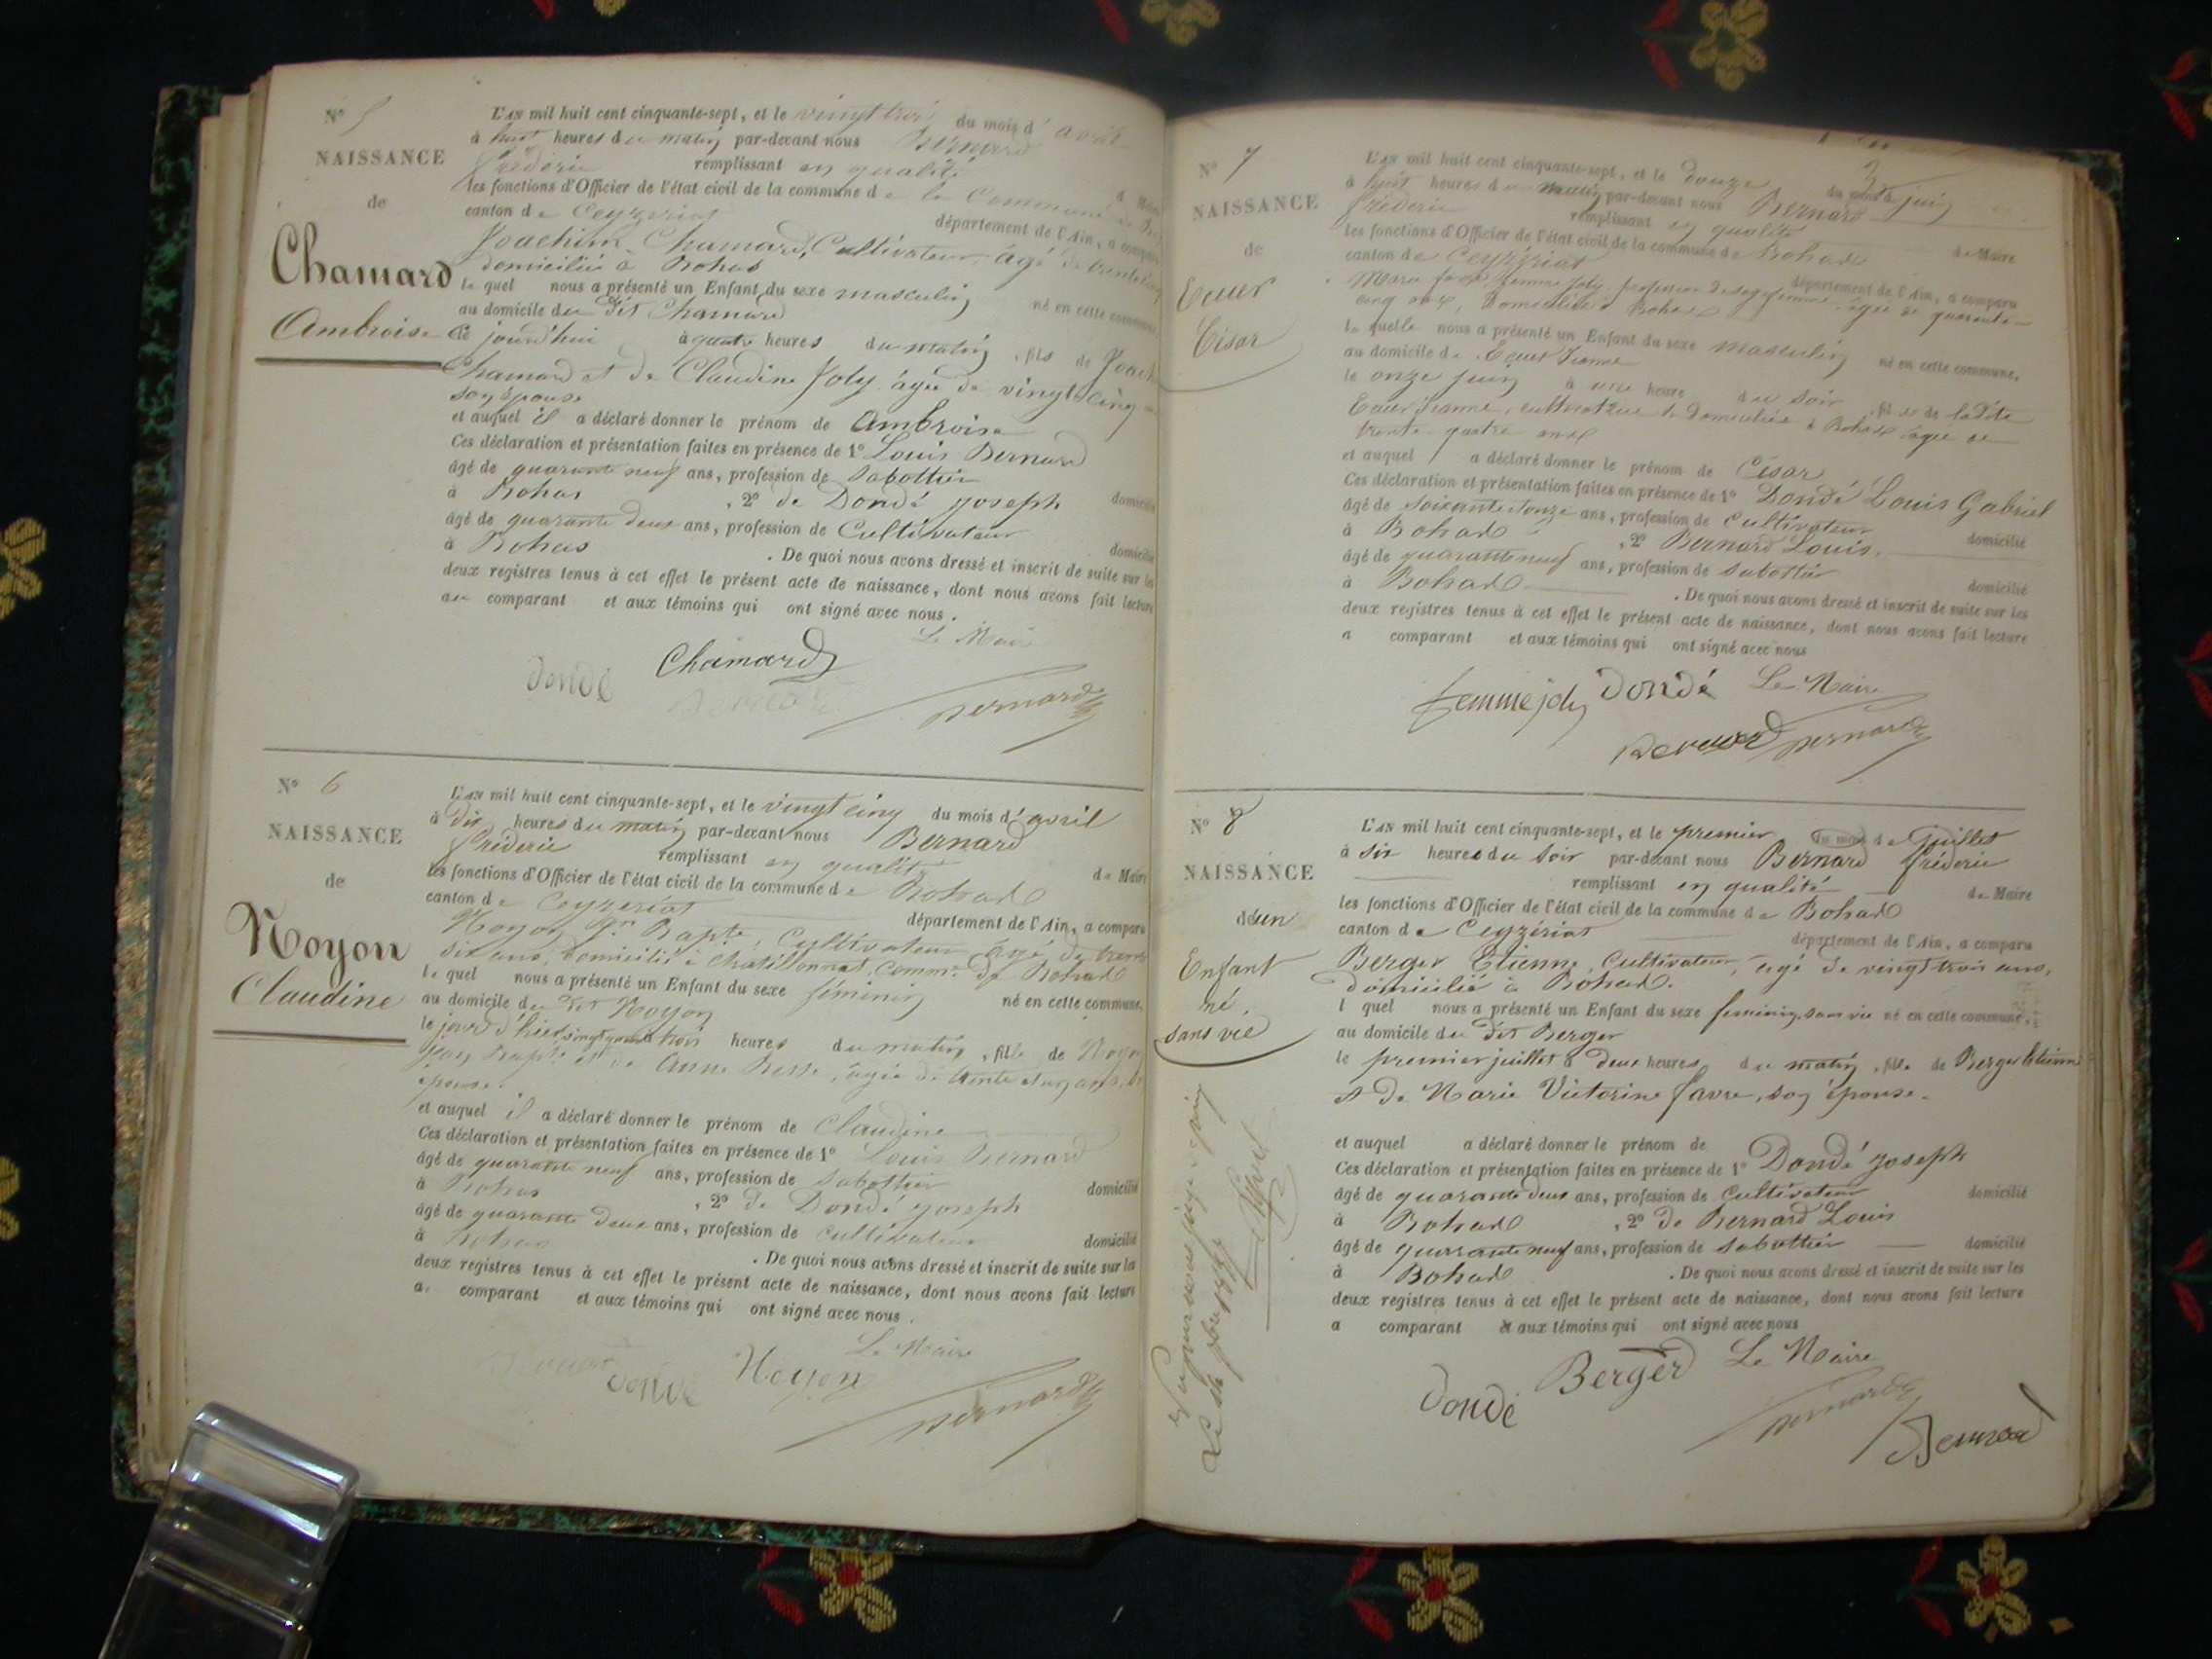 N° 5
NAISSANCE
de
Chamard
Ambroise
L'AN mil huit cent cinquante-sept, et le vingt trois du mois d'avril
à huit heures du matin par-devant nous Bernard
fréderic remplissant en qualité
de Maire
les fonctions d'Officier de l'état civil de la commune de la Commune de
canton de Ceyzeriat département de l'Ain, a comparu
Joachim Chamard, Cultivateur âgé de trente
domicilié à Rohas
le quel nous a présenté un Enfant du sexe masculin né en cette commune
au domicile du dit Chamard
ce jourd'hui à quatre heures du matin, fils de Joachim
Chamard et de Claudine Joly âgée de vingt cinq
son épouse
et auquel il a déclaré donner le prénom de Ambroise
Ces déclaration et présentation faites en présence de 1° Louis Bernard
âgé de quarante neuf ans, profession de Sabottier
domicilié
à Rohas , 2° de Dondé joseph
âgé de quarante deux ans, profession de Cultivateur
domicilié
à Rohas . De quoi nous avons dressé et inscrit de suite sur les
deux registres tenus à cet effet le présent acte de naissance, dont nous avons fait lecture
au comparant et aux témoins qui ont signé avec nous.
Le Maire
Dondé Chamard
Bernard
N° 6
NAISSANCE
de
Noyon
Claudine
L'AN mil huit cent cinquante-sept, et le vingt cinq du mois d'avril
à dix heures du matin par-devant nous Bernard
fréderic remplissant en qualité
de Maire
les fonctions d'Officier de l'état civil de la commune de Rohas
canton de Ceyzeriat département de l'Ain, a comparu
Noyon Jn Bapte, Cultivateur âgé de trente
six ans, domicilié à Chatillonnet, Comm. de Rohas
le quel nous a présenté un Enfant du sexe féminin né en cette commune,
au domicile du dit Noyon
le jour d'hier vingt quatre à trois heures du matin, fille de Noyon
Jean Bapte et de Anne Besse, âgée de trente et un ans, son
épouse
et auquel il a déclaré donner le prénom de Claudine
Ces déclaration et présentation faites en présence de 1° Louis Bernard
âgé de quarante neuf ans, profession de Sabottier
domicilié
à Rohas , 2° de Dondé joseph
âgé de quarante deux ans, profession de cultivateur
domicilié
à Rohas . De quoi nous avons dressé et inscrit de suite sur les
deux registres tenus à cet effet le présent acte de naissance, dont nous avons fait lecture
au comparant et aux témoins qui ont signé avec nous.
Le Maire
Dondé Noyon
Bernard
N° 7
NAISSANCE
de
Ecuer
César
L'AN mil huit cent cinquante-sept, et le douze du mois de juin
à huit heures du matin par-devant nous Bernard
fréderic remplissant en qualité
de Maire
les fonctions d'Officier de l'état civil de la commune de Rohas
canton de Ceyzériat département de l'Ain, a comparu
femme Joly, profession de sage femme âgée de quarante
cinq ans, domiciliée à Rohas
la quelle nous a présenté un Enfant du sexe masculin né en cette commune,
au domicile de Ecuer Jeanne
le onze juin à une heure du soir, fils de la dite
Ecuer Jeanne, cultivatrice domiciliée à Rohas âgée de
trente quatre ans
et auquel a déclaré donner le prénom de César
Ces déclaration et présentation faites en présence de 1° Dondé Louis Gabriel
âgé de soixante et onze ans, profession de cultivateur
domicilié
à Rohas , 2° Bernard Louis
âgé de quarante neuf ans, profession de sabottier
domicilié
à Rohas . De quoi nous avons dressé et inscrit de suite sur les
deux registres tenus à cet effet le présent acte de naissance, dont nous avons fait lecture
a comparant et aux témoins qui ont signé avec nous
femme joly Dondé Le Maire
Bernard Bernard
N° 8
NAISSANCE
de un
Enfant
né
sans vie
L'AN mil huit cent cinquante-sept, et le premier du mois de juillet
à six heures du soir par-devant nous Bernard fréderic
remplissant en qualité de Maire
les fonctions d'Officier de l'état civil de la commune de Rohas
canton de Ceyzériat département de l'Ain, a comparu
Berger Etienne, Cultivateur, agé de vingt trois ans,
domicilié à Rohas.
l quel nous a présenté un Enfant du sexe feminin, sans vie né en cette commune,
au domicile du dit Berger
le premier juillet à deux heures du matin, fille de Berger Etienne
et de Marie Victorine favre, son épouse.
et auquel a déclaré donner le prénom de
Ces déclaration et présentation faites en présence de 1° Dondé joseph
âgé de quarante deux ans, profession de cultivateur domicilié
à Rohas , 2° de Bernard Louis
âgé de quarante neuf ans, profession de sabottier domicilié
à Rohas . De quoi nous avons dressé et inscrit de suite sur les
deux registres tenus à cet effet le présent acte de naissance, dont nous avons fait lecture
a comparant et aux témoins qui ont signé avec nous
Dondé Berger Le Maire
Bernard
Bernard